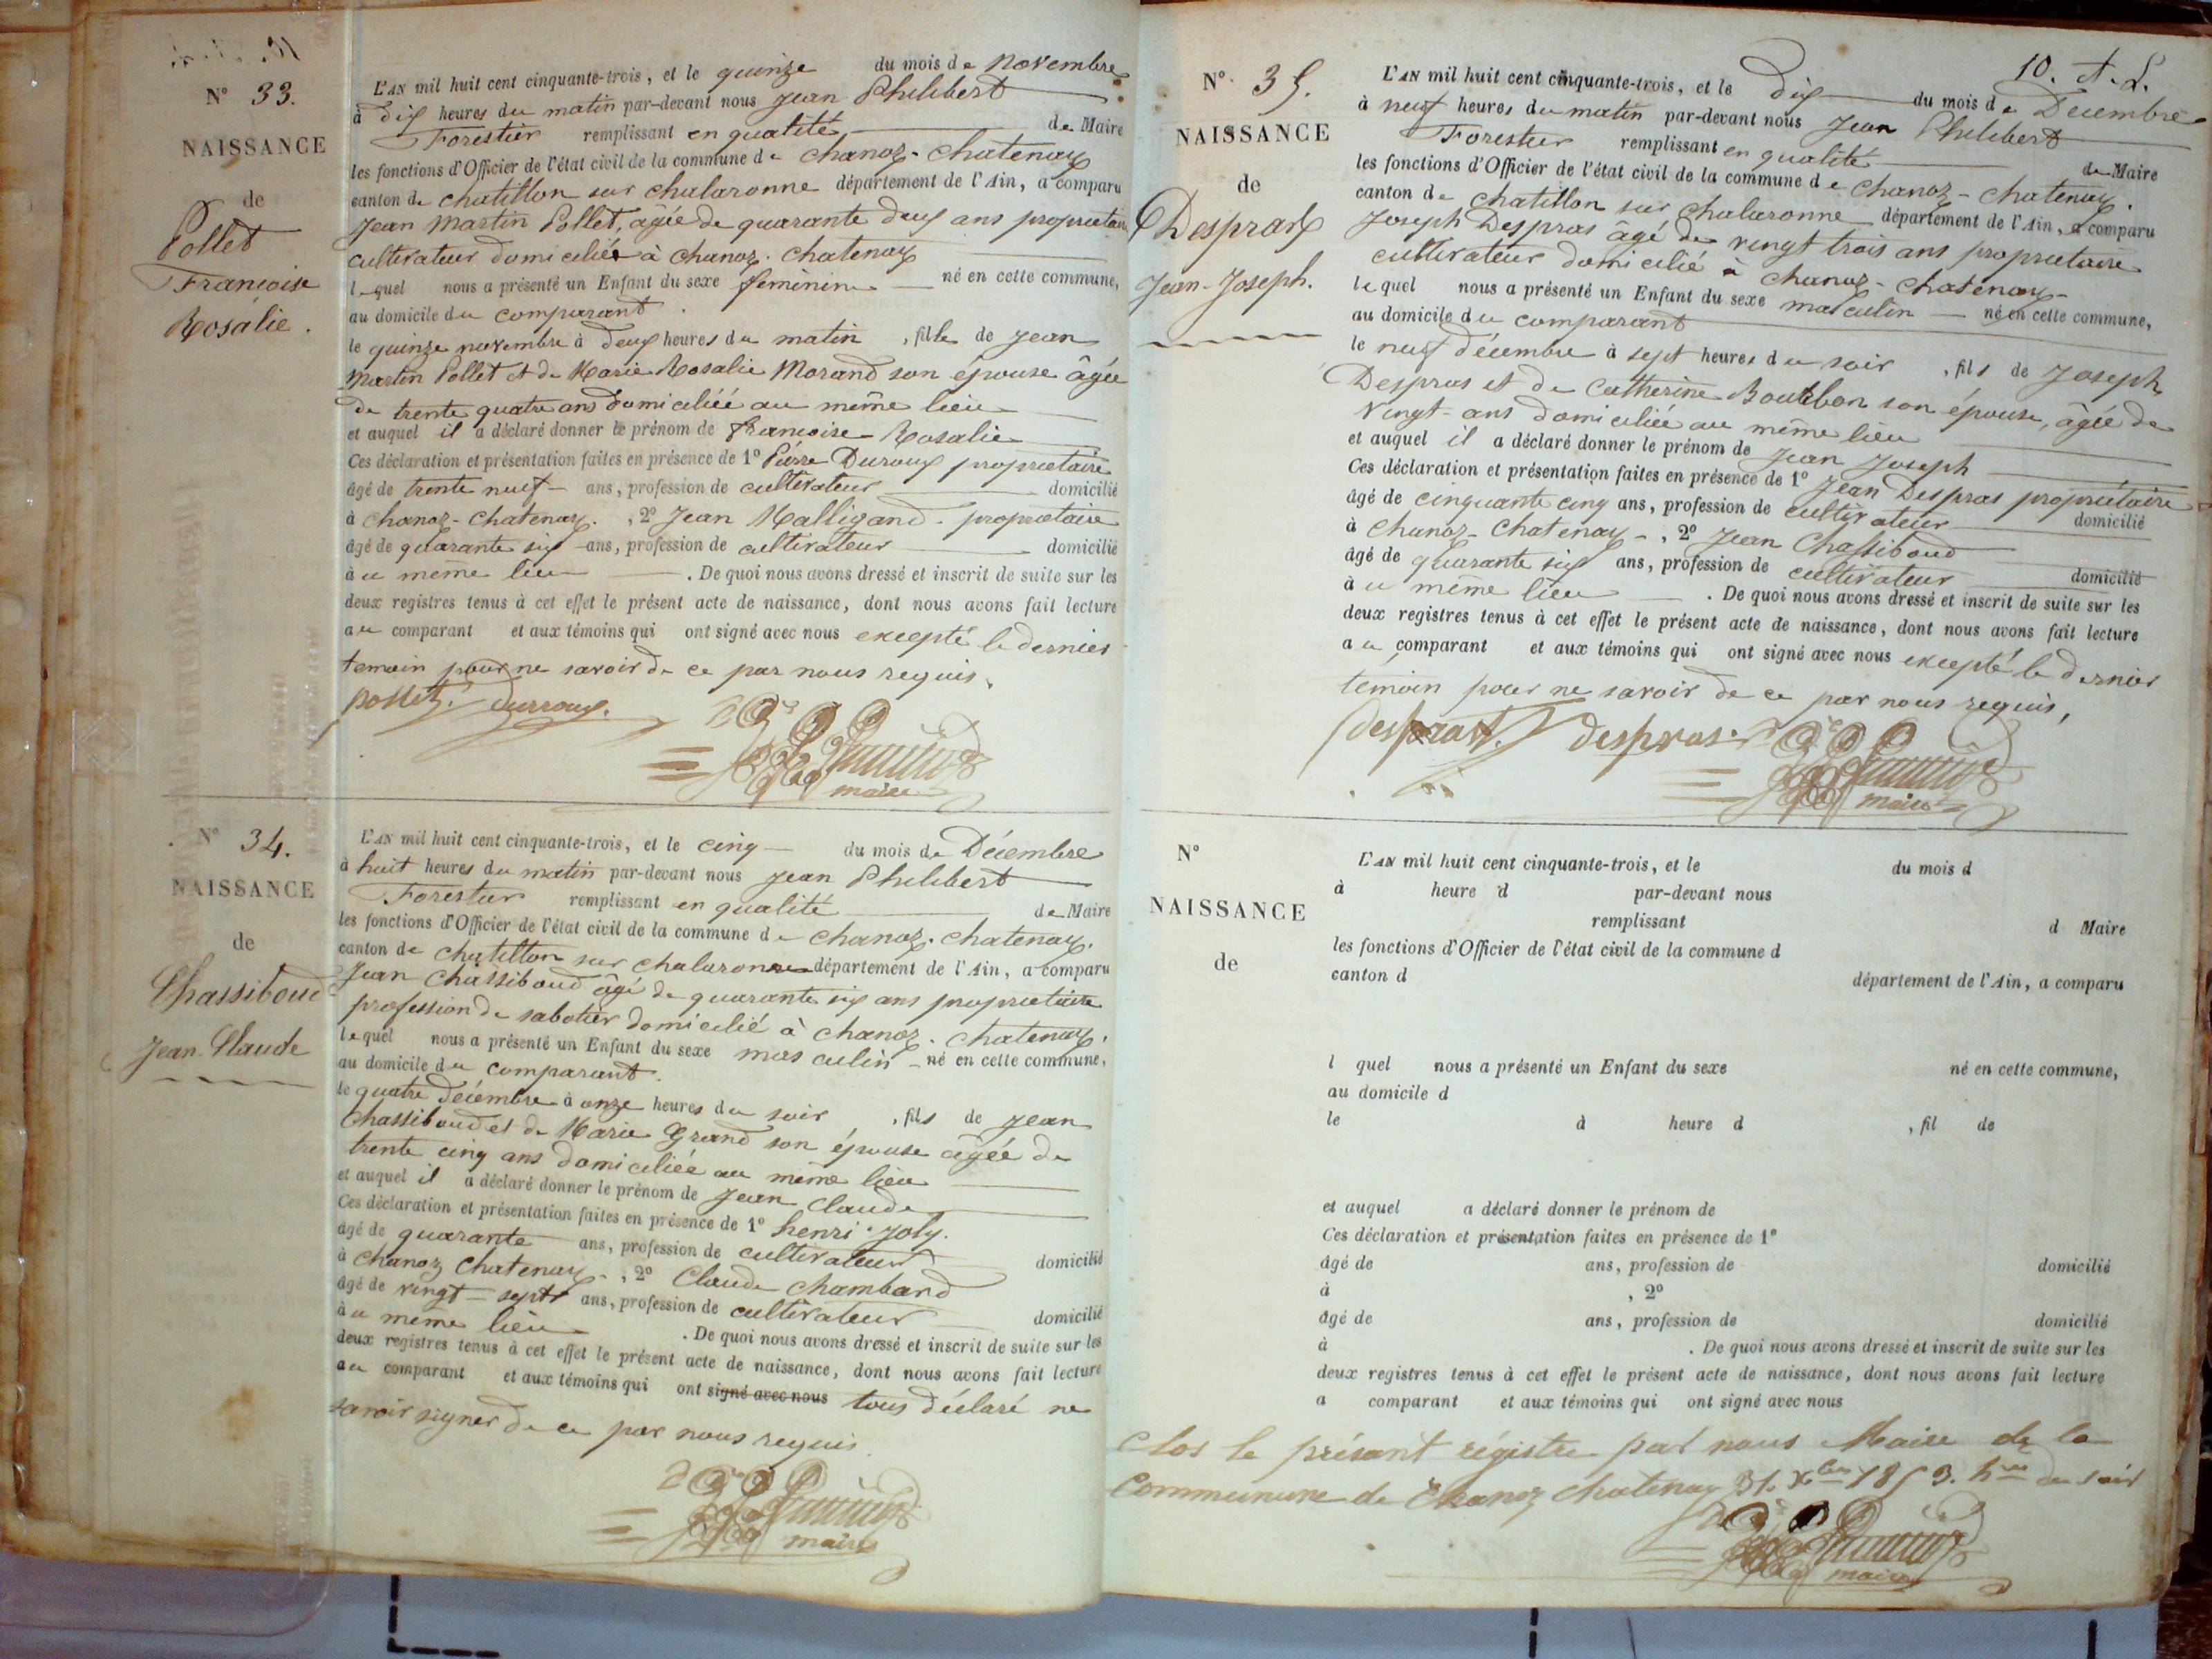 N° 33.
NAISSANCE
de
Pollet
Francoise
Rosalie.
L'AN mil huit cent cinquante-trois, et le quinze du mois de Novembre
à dix heures du matin par-devant nous Jean Philibert
Forestier remplissant en qualité de Maire
les fonctions d'Officier de l'état civil de la commune de Chanoz-Chatenay
canton de Chatillon sur chalaronne département de l'Ain, a comparu
Jean Martin Pollet, agée de quarante deux ans propriétaire
cultivateur domiciliée à Chanoz-Chatenay
lequel nous a présenté un Enfant du sexe feminin né en cette commune,
au domicile du comparant.
le quinze novembre à deux heures du matin, fille de Jean
Martin Pollet et de Marie Rosalie Morand son épouse âgée
de trente quatre ans domiciliée au même lieu
et auquel il a déclaré donner le prénom de francoise Rosalie
Ces déclaration et présentation faites en présence de 1° Pierre Duroux propriétaire
âgé de trente neuf ans, profession de cultivateur domicilié
à Chanoz-Chatenay., 2° Jean Malligand. propriétaire
âgé de quarante six ans, profession de cultivateur domicilié
à u même lieu. De quoi nous avons dressé et inscrit de suite sur les
deux registres tenus à cet effet le présent acte de naissance, dont nous avons fait lecture
au comparant et aux témoins qui ont signé avec nous excepté le dernier
temoin pour ne savoir de ce par nous requis.
pollet. durroux.
maire
N° 34.
NAISSANCE
de
Chassiboud
Jean-Claude
L'AN mil huit cent cinquante-trois, et le cinq du mois de Décembre
à huit heures du matin par-devant nous Jean Philibert
Forestier remplissant en qualité de Maire
les fonctions d'Officier de l'état civil de la commune de Chanoz-Chatenay.
canton de Chatillon sur chalaronne département de l'Ain, a comparu
Jean Chassiboud âgé de quarante six ans propriétaire
profession de sabotier domicilié à Chanoz-Chatenay.
lequel nous a présenté un Enfant du sexe masculin né en cette commune,
au domicile du comparant.
le quatre décembre à onze heures du soir, fils de Jean
Chassiboud et de Marie Grand son épouse agée de
trente cinq ans domiciliée au même lieu
et auquel il a déclaré donner le prénom de Jean Claude
Ces déclaration et présentation faites en présence de 1° henri Joly.
âgé de quarante ans, profession de cultivateur domicilié
à Chanoz Chatenay, 2° Claude Chambard
âgé de vingt-sept ans, profession de cultivateur domicilié
à u même lieu. De quoi nous avons dressé et inscrit de suite sur les
deux registres tenus à cet effet le présent acte de naissance, dont nous avons fait lecture
au comparant et aux témoins qui ont signé avec nous tous déclaré ne
savoir signer de ce par nous requis
maire
10. A. L.
N° 35.
NAISSANCE
de
Despras
Jean-Joseph.
L'AN mil huit cent cinquante-trois, et le dix du mois de Décembre
à neuf heures du matin par-devant nous Jean Philibert
Forestier remplissant en qualité de Maire
les fonctions d'Officier de l'état civil de la commune de Chanoz-Chatenay.
canton de Chatillon sur Chalaronne département de l'Ain, a comparu
Joseph Despras agé de vingt trois ans propriétaire
cultivateur domicilié à Chanoz-Chatenay
lequel nous a présenté un Enfant du sexe masculin né en cette commune,
au domicile du comparant
le neuf décembre à sept heures du soir, fils de Joseph
Despras et de Catherine Boulbon son épouse, âgée de
vingt-ans domiciliée au même lieu
et auquel il a déclaré donner le prénom de Jean Joseph
Ces déclaration et présentation faites en présence de 1° Jean Despras propriétaire
âgé de cinquante cinq ans, profession de cultivateur domicilié
à Chanoz-Chatenay, 2° Jean Chassiboud
âgé de quarante six ans, profession de cultivateur domicilié
à u même lieu. De quoi nous avons dressé et inscrit de suite sur les
deux registres tenus à cet effet le présent acte de naissance, dont nous avons fait lecture
au comparant et aux témoins qui ont signé avec nous excepté le dernier
temoin pour ne savoir de ce par nous requis,
despras. despras.
maire
N°
NAISSANCE
de
L'AN mil huit cent cinquante-trois, et le du mois d
à heure d par-devant nous
remplissant d Maire
les fonctions d'Officier de l'état civil de la commune d
canton d département de l'Ain, a comparu
l quel nous a présenté un Enfant du sexe né en cette commune,
au domicile d
le à heure d , fil de
et auquel a déclaré donner le prénom de
Ces déclaration et présentation faites en présence de 1°
âgé de ans, profession de domicilié
à , 2°
âgé de ans, profession de domicilié
à . De quoi nous avons dressé et inscrit de suite sur les
deux registres tenus à cet effet le présent acte de naissance, dont nous avons fait lecture
a comparant et aux témoins qui ont signé avec nous
Clos le présant régistre par nous Maire de la
Commune de Chanoz Chatenay 31. Xbre 1853. du soir
maire